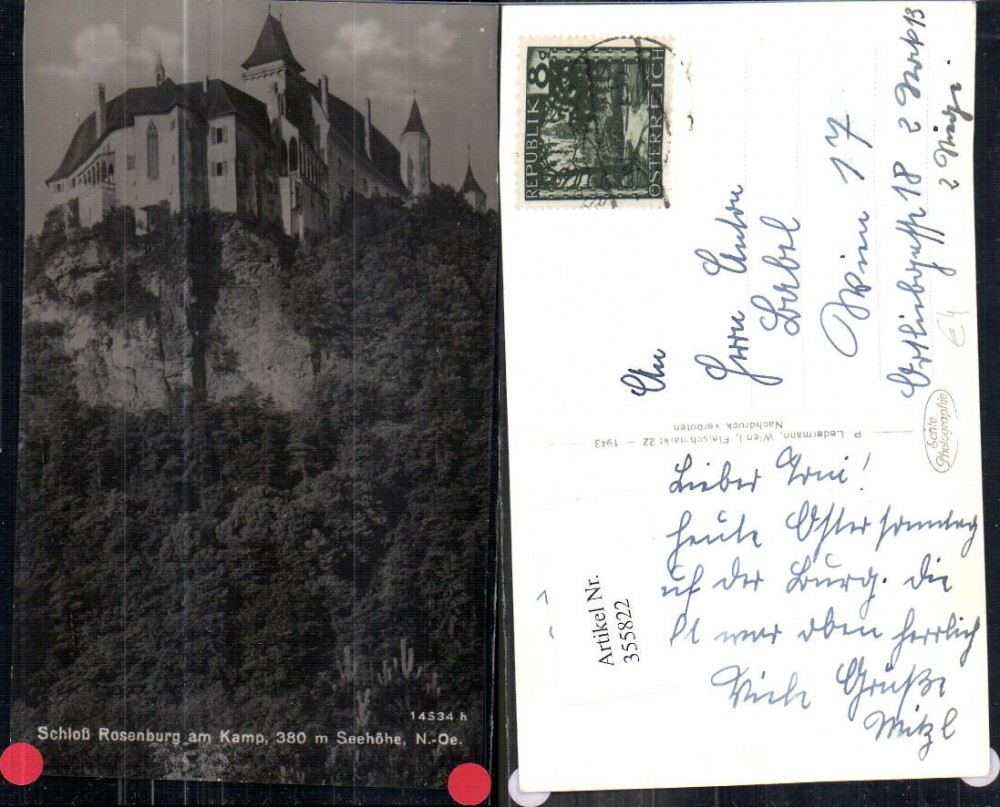 14534 h
Schloß Rosenburg am Kamp, 380 m Seehöhe, N.-Oe.
8 g
REPUBLIK
ÖSTERREICH
An
Herrn Anton
Babel
Wien 17
18 2
13
2
€4
P. Ledermann, Wien I, Fleischmarkt 22 – 1943
Nachdruck verboten
Echte
Photographie
Lieber Toni!
Heute Ostersonntag
auf der Burg. Die
war oben herrlich
Viele Grüße
Mitzl
Artikel Nr.
355822